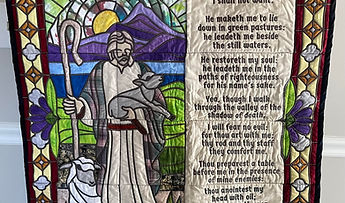 I shall not want.
He maketh me to lie
down in green pastures:
he leadeth me beside
the still waters.
He restoreth my soul:
he leadeth me in the
paths of righteousness
for his name's sake.
Yea, though I walk
through the valley of the
shadow of death,
I will fear no evil:
for thou art with me;
thy rod and thy staff
they comfort me.
Thou preparest a table
before me in the presence
of mine enemies:
thou anointest my
head with oil;